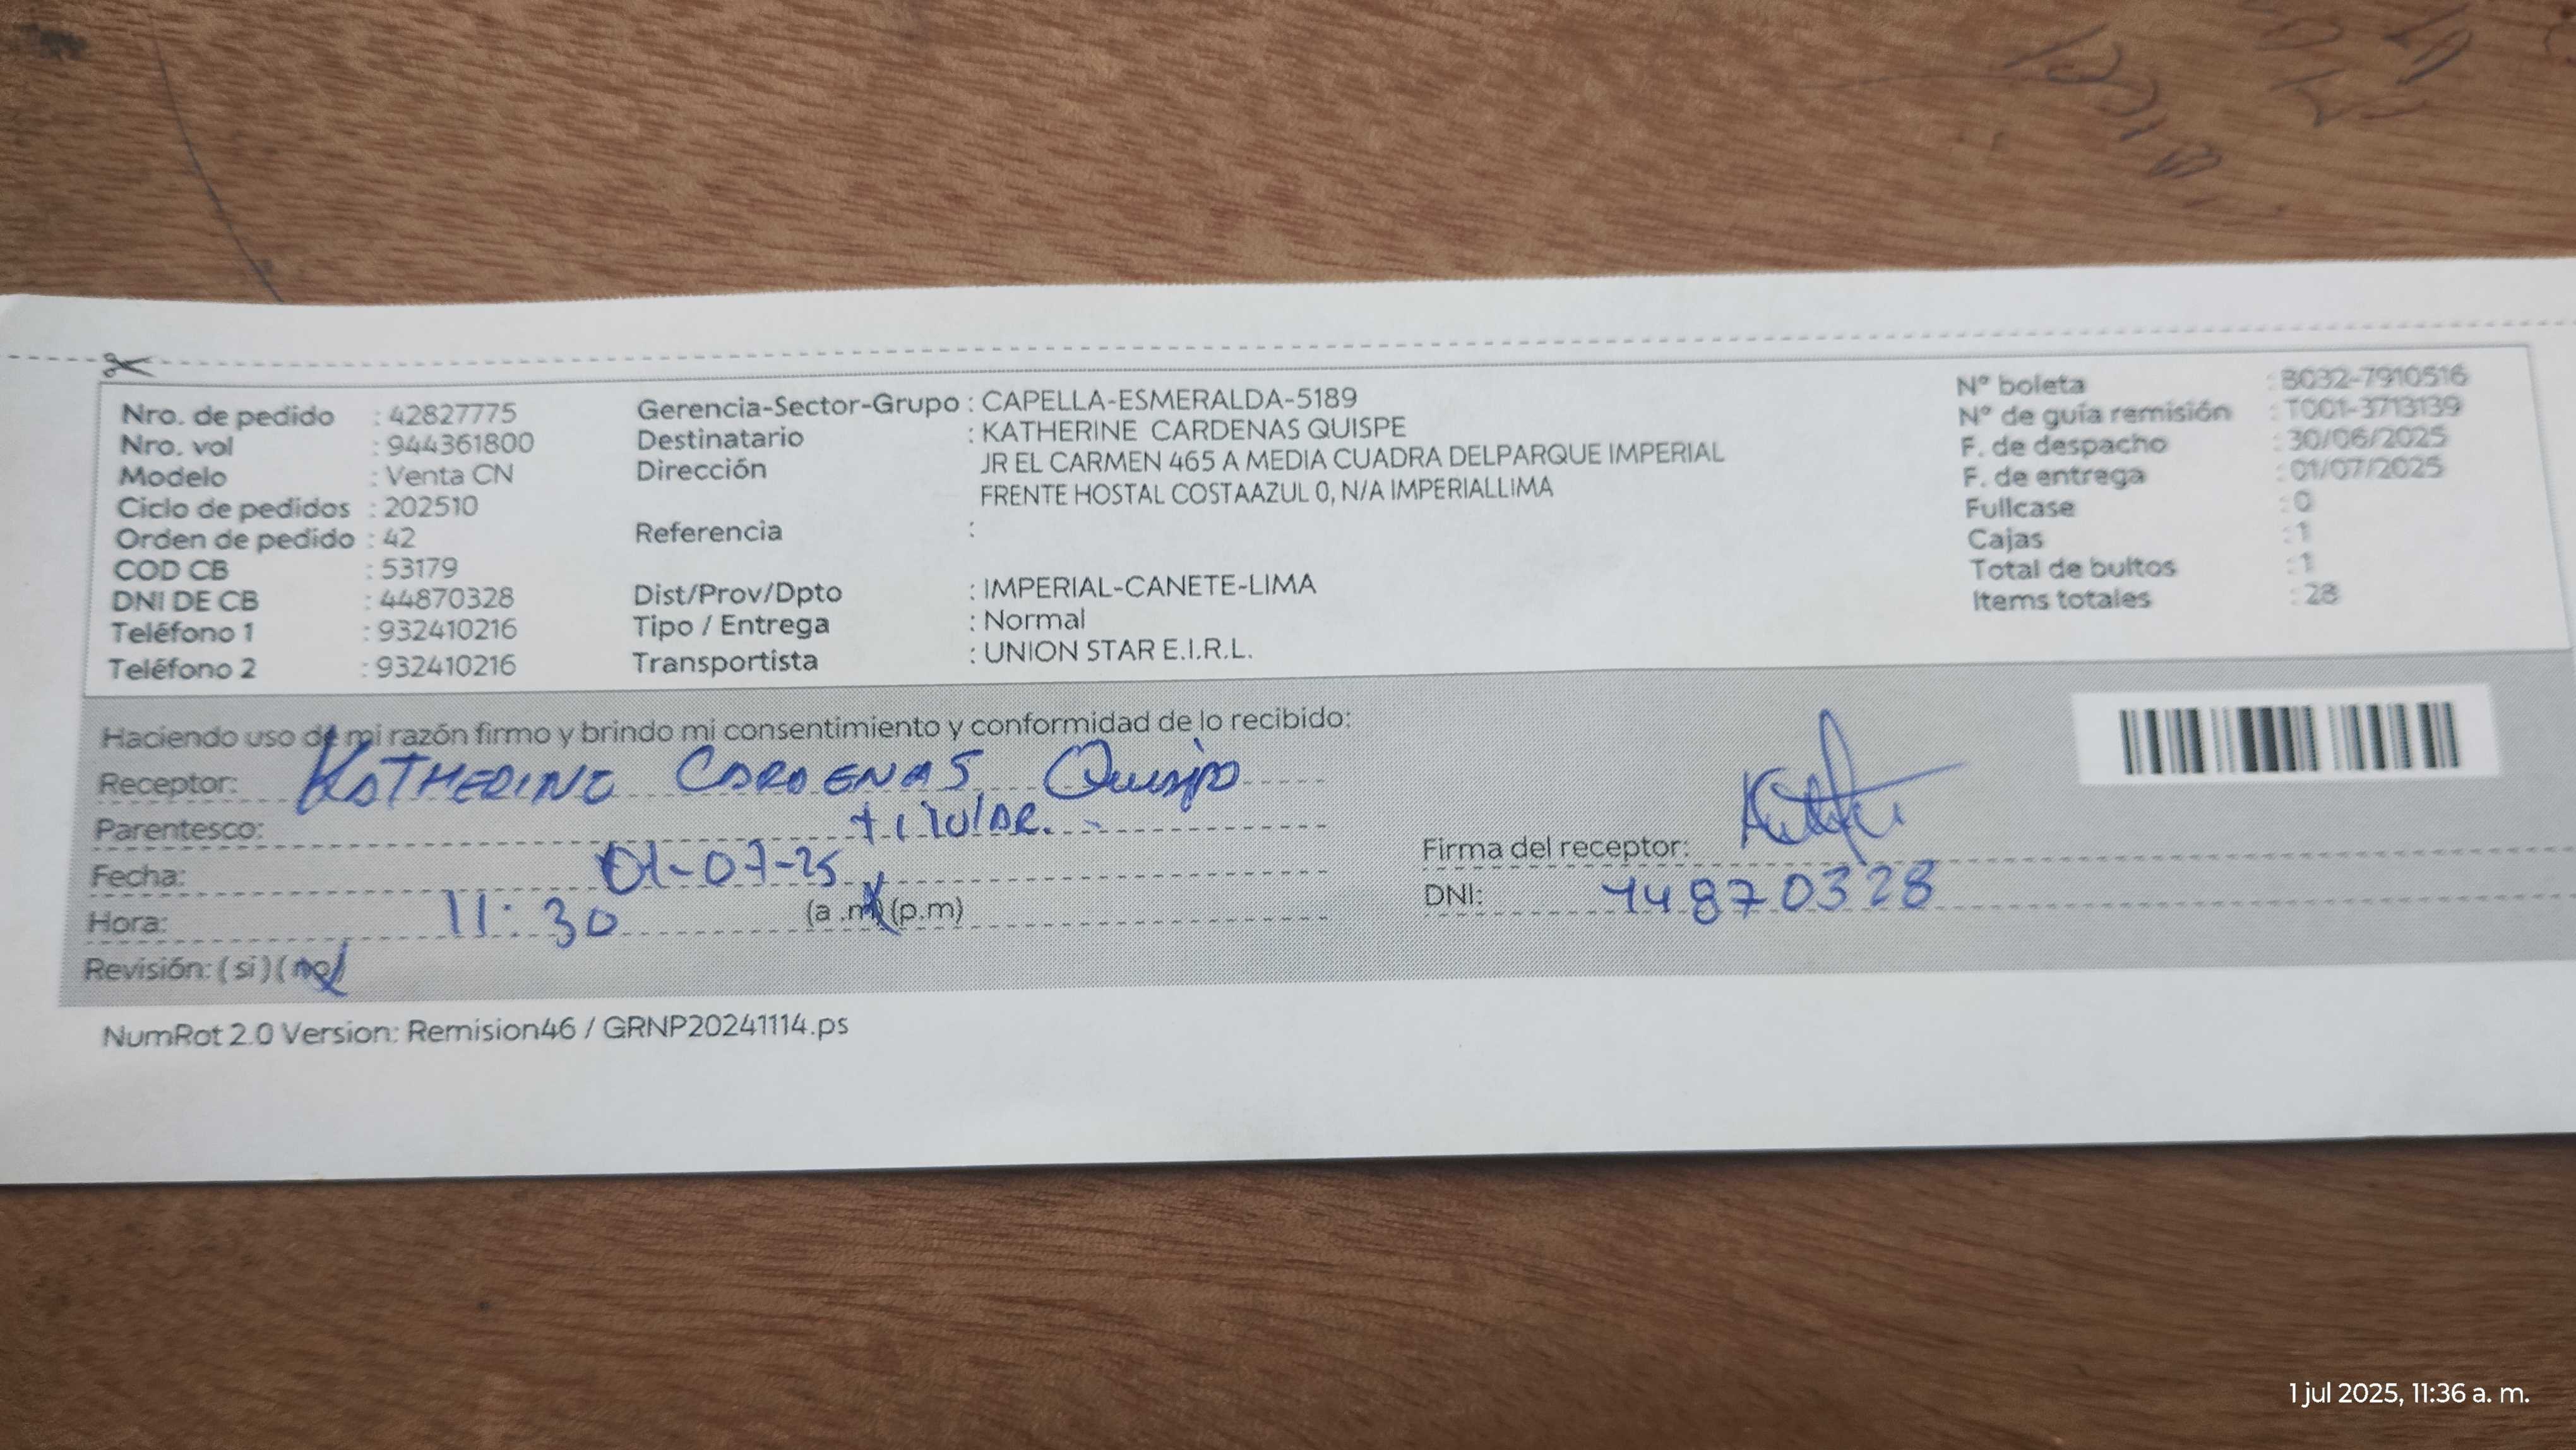 Nro. de pedido : 42827775
Nro. vol : 944361800
Modelo : Venta CN
Ciclo de pedidos : 202510
Orden de pedido : 42
COD CB : 53179
DNI DE CB : 44870328
Teléfono 1 : 932410216
Teléfono 2 : 932410216
Gerencia-Sector-Grupo : CAPELLA-ESMERALDA-5189
Destinatario : KATHERINE CARDENAS QUISPE
Dirección JR EL CARMEN 465 A MEDIA CUADRA DELPARQUE IMPERIAL
FRENTE HOSTAL COSTAAZUL 0, N/A IMPERIALLIMA
Referencia :
Dist/Prov/Dpto : IMPERIAL-CANETE-LIMA
Tipo / Entrega : Normal
Transportista : UNION STAR E.I.R.L.
Nº boleta : B032-7910516
Nº de guía remisión : T001-3713139
F. de despacho : 30/06/2025
F. de entrega : 01/07/2025
Fullcase : 0
Cajas : 1
Total de bultos : 1
Items totales : 28
Haciendo uso de mi razón firmo y brindo mi consentimiento y conformidad de lo recibido:
Receptor: KATHERINE CARDENAS Quispe
Parentesco: titular.
Fecha: 01-07-25
Hora: 11:30 (a.m) (p.m)
Revisión: (si) (no)
Firma del receptor:
DNI: 44870328
NumRot 2.0 Version: Remision46 / GRNP20241114.ps
1 jul 2025, 11:36 a. m.